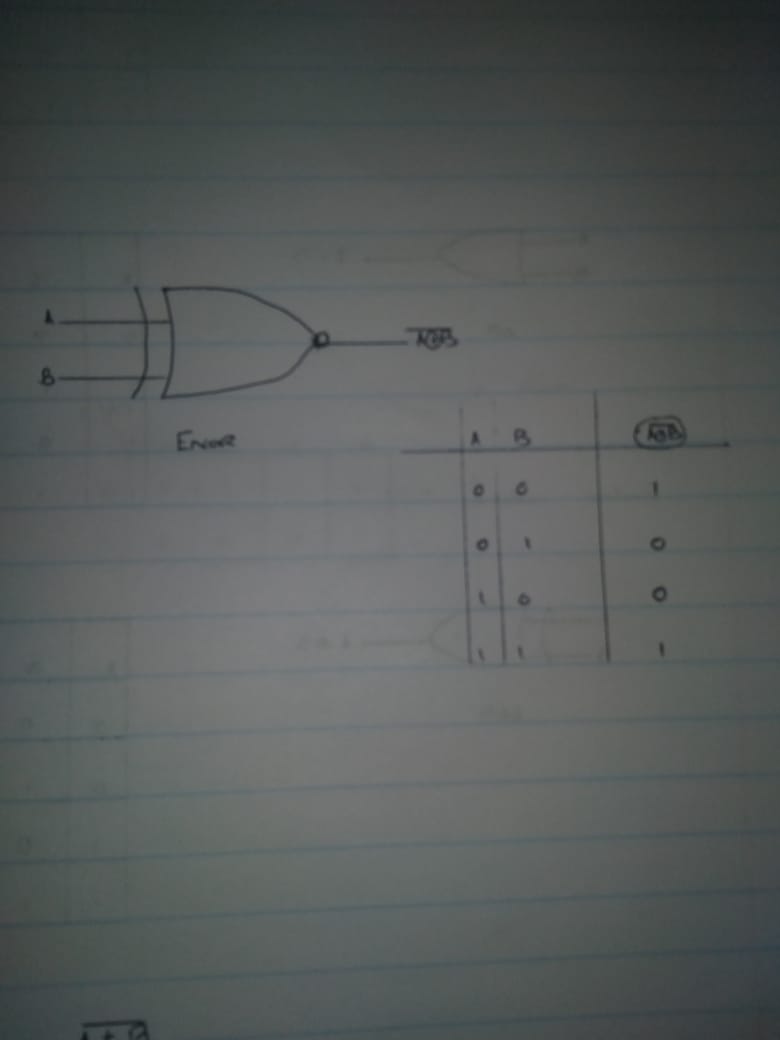 A
B
$\overline{A \oplus B}$
Enor
A B $\overline{A \oplus B}$
0 0 1
0 1 0
1 0 0
1 1 1